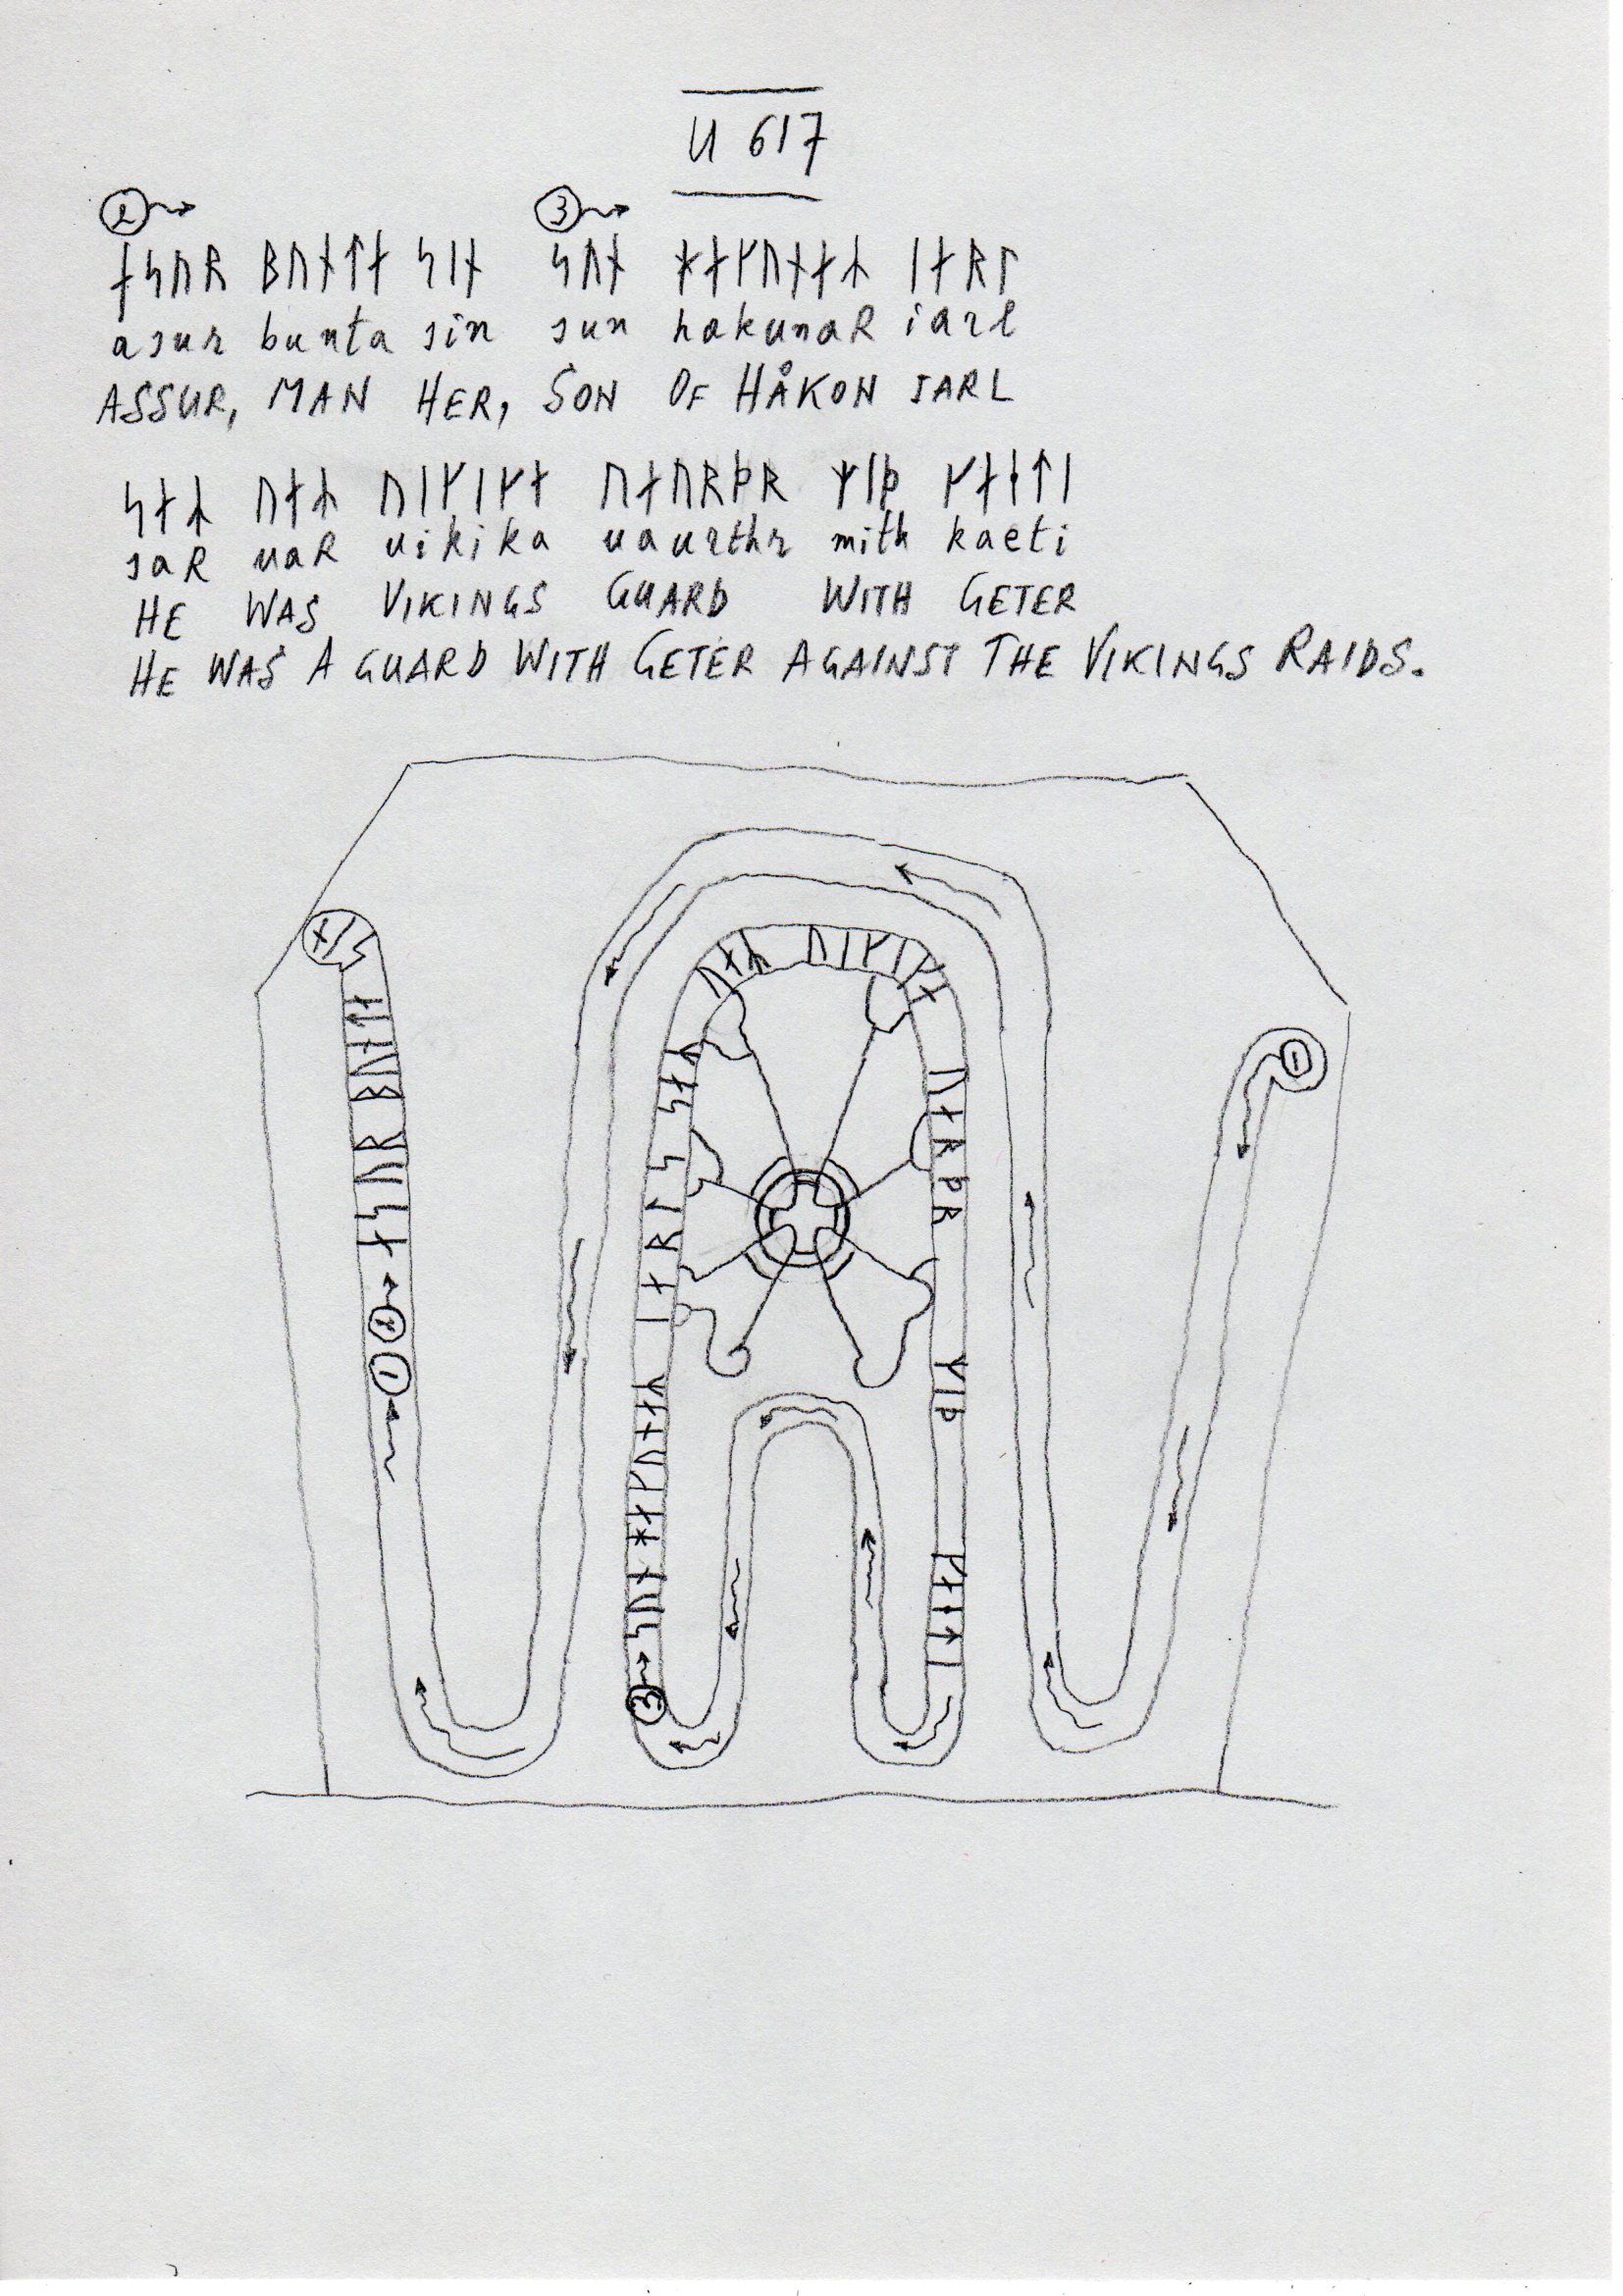 U 617
② ③
ᚬᛋᚢᚱ ᛒᚢᚾᛏᛅ ᛋᛁᚾ ᛋᚢᚾ ᚼᛅᚴᚢᚾᛅᛦ ᛁᛅᚱᛚ
asur bunta sin sun hakunaR iarl
ASSUR, MAN HER, SON OF HÅKON JARL
ᛋᛅᛦ ᚢᛅᛦ ᚢᛁᚴᛁᚴᛅ ᚢᛅᚢᚱᚦᚱ ᛘᛁᚦ ᚴᛅᛂᛏᛁ
saR uaR uikika uaurthr mith kaeti
HE WAS VIKINGS GUARD WITH GETER
HE WAS A GUARD WITH GETER AGAINST THE VIKINGS RAIDS.
①
① ② ᚬᛋᚢᚱ ᛒᚢᚾᛏᛅ ᛋᛁᚾ
③ ᛋᚢᚾ ᚼᛅᚴᚢᚾᛅᛦ ᛁᛅᚱᛚ ᛋ ᛋᛅᛦ ᚢᛅᛦ ᚢᛁᚴᛁᚴᛅ ᚢᛅᚱᚦᚱ ᛘᛁᚦ ᚴᛅᛂᛏᛁ